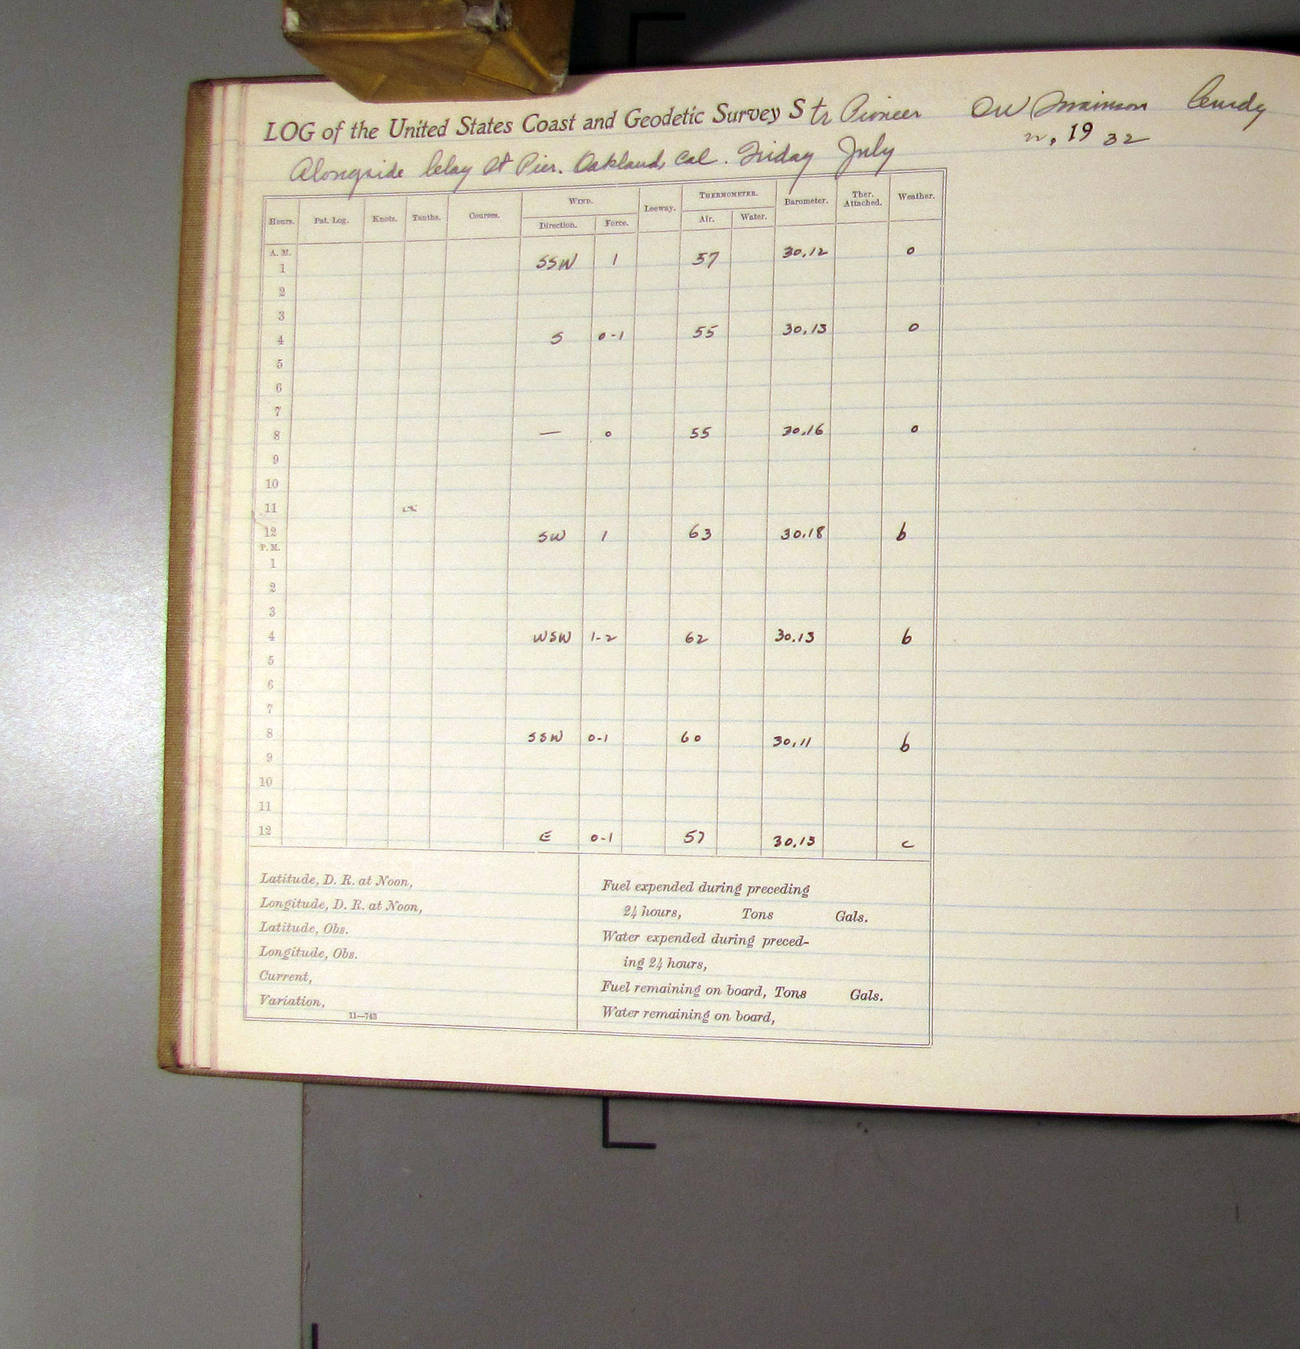 LOG of the United States Coast and Geodetic Survey Str Pioneer OW Swainson Comdg
Alongside Clay St Pier. Oakland, Cal. Friday July 22, 1932
Hours. Pat. Log. Knots. Tenths. Courses. WIND. Leeway. THERMOMETER. Barometer. Ther. Attached. Weather.
Direction. Force. Air. Water.
A. M.
1 SSW 1 57 30.12 o
2
3
4 S 0-1 55 30.13 o
5
6
7
8 — 0 55 30.16 o
9
10
11
12 SW 1 63 30.18 b
P. M.
1
2
3
4 WSW 1-2 62 30.13 b
5
6
7
8 SSW 0-1 60 30.11 b
9
10
11
12 E 0-1 57 30.13 c
Latitude, D. R. at Noon,
Longitude, D. R. at Noon,
Latitude, Obs.
Longitude, Obs.
Current,
Variation,
11—743
Fuel expended during preceding
24 hours, Tons Gals.
Water expended during preced-
ing 24 hours,
Fuel remaining on board, Tons Gals.
Water remaining on board,